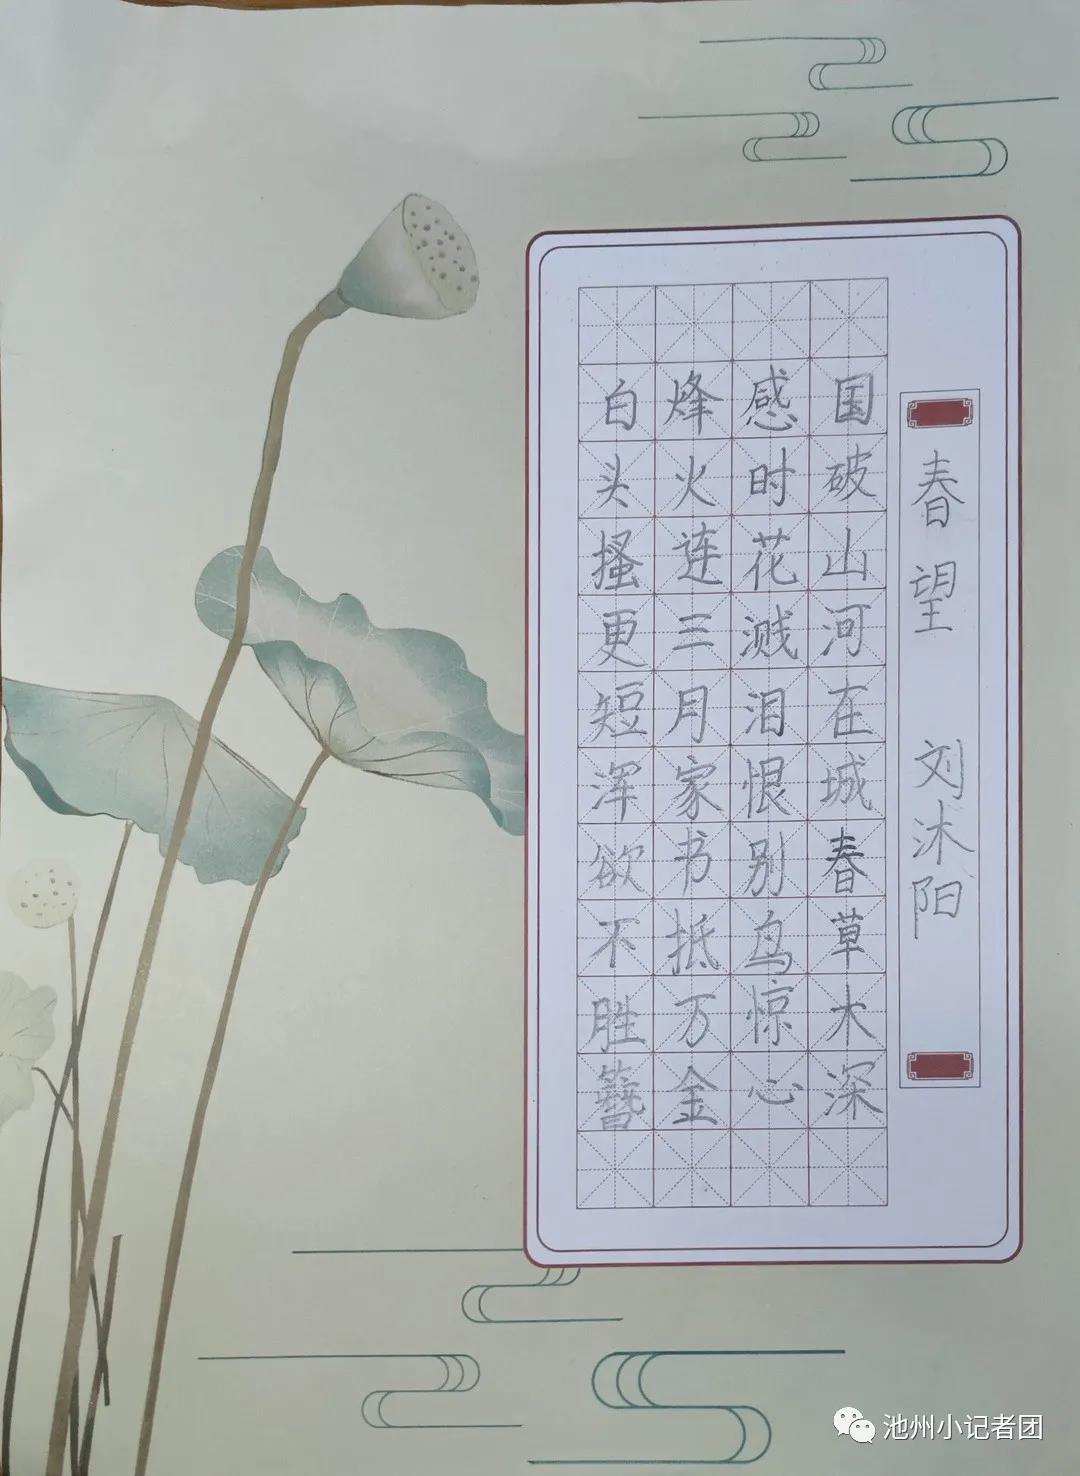 春望 刘沐阳
国破山河在城春草木深
感时花溅泪恨别鸟惊心
烽火连三月家书抵万金
白头搔更短浑欲不胜簪
池州小记者团